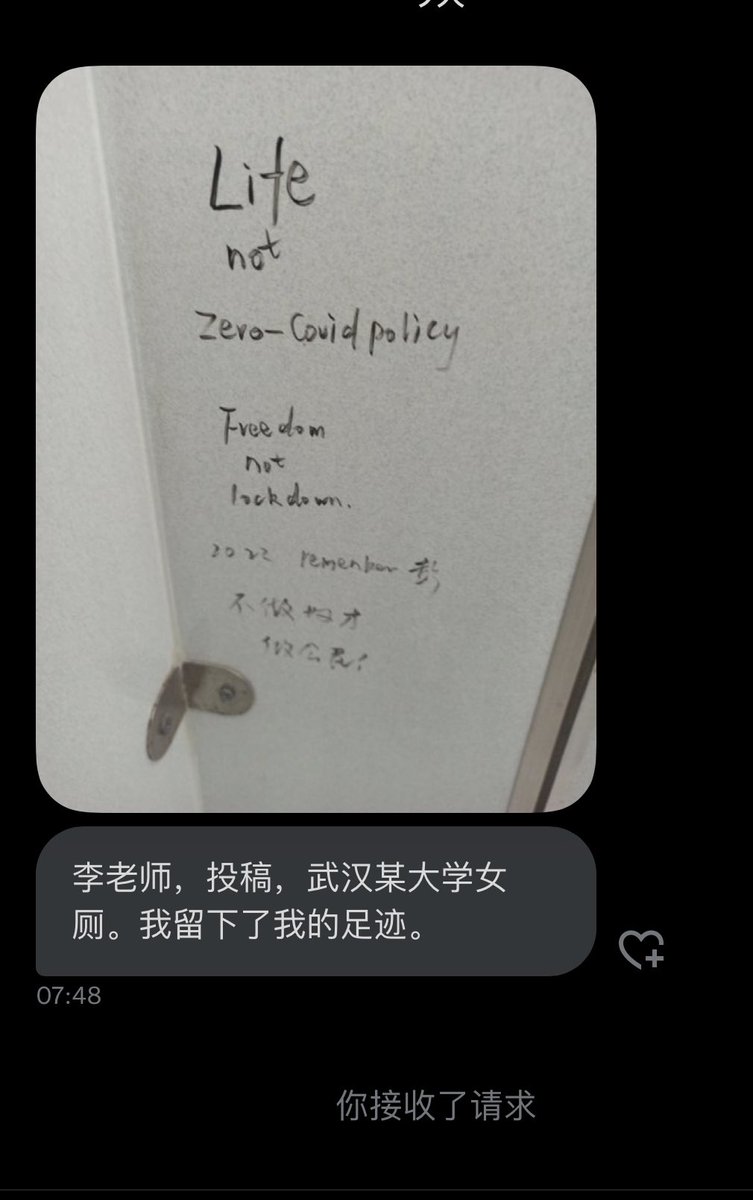 Life
not
Zero-Covid policy
Freedom
not
lockdown.
2022 remenber 彭
不做奴才
做公民!
李老师，投稿，武汉某大学女
厕。我留下了我的足迹。
07:48
你接收了请求